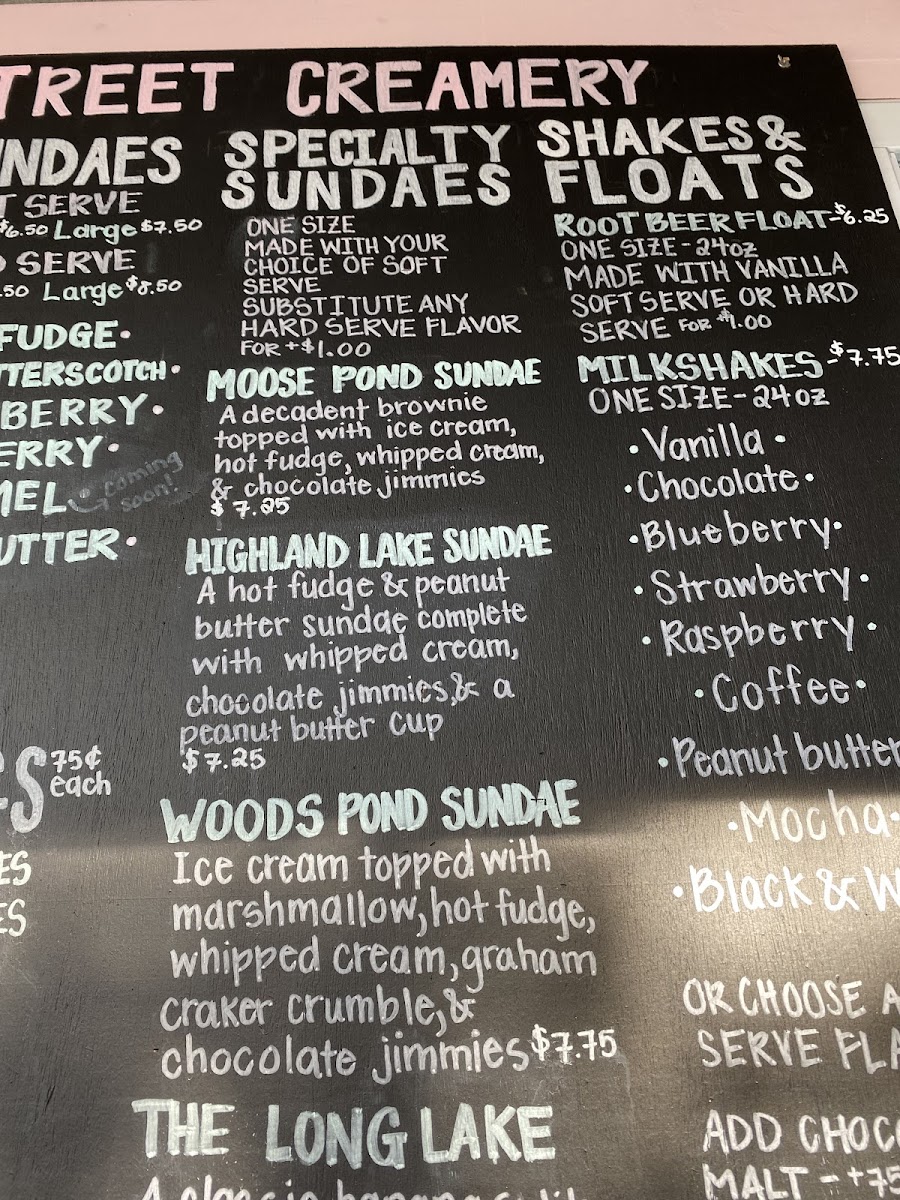 TREET CREAMERY
NDAES
T SERVE
$6.50 Large $7.50
SERVE
.50 Large $8.50
FUDGE•
TTERSCOTCH•
BERRY•
ERRY•
MEL
coming
soon!
UTTER•
75¢
each
ES
ES
SPECIALTY
SUNDAES
ONE SIZE
MADE WITH YOUR
CHOICE OF SOFT
SERVE
SUBSTITUTE ANY
HARD SERVE FLAVOR
FOR +$1.00
MOOSE POND SUNDAE
A decadent brownie
topped with ice cream,
hot fudge, whipped cream,
& chocolate jimmies
$7.25
HIGHLAND LAKE SUNDAE
A hot fudge & peanut
butter sundae complete
with whipped cream,
chocolate jimmies, & a
peanut butter cup
$7.25
WOODS POND SUNDAE
Ice cream topped with
marshmallow, hot fudge,
whipped cream, graham
craker crumble, &
chocolate jimmies $7.75
THE LONG LAKE
A classic banana split
SHAKES &
FLOATS
ROOT BEER FLOAT-$6.25
ONE SIZE - 24oz
MADE WITH VANILLA
SOFT SERVE OR HARD
SERVE FOR $1.00
MILKSHAKES-$7.75
ONE SIZE - 24oz
•Vanilla•
•Chocolate•
•Blueberry•
•Strawberry•
•Raspberry•
•Coffee•
•Peanut butter
•Mocha•
•Black & W
OR CHOOSE A
SERVE FLA
ADD CHOC
MALT - +75